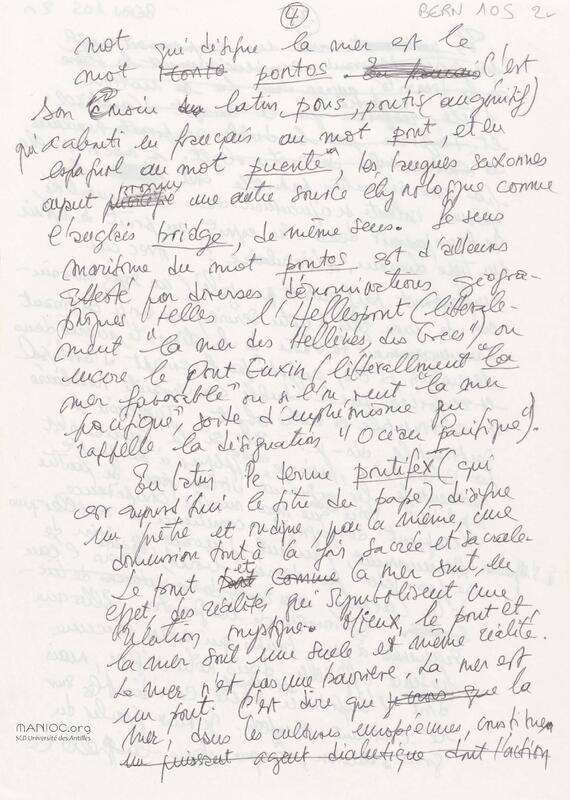 4
BERN 105 2v
mot qui désigne la mer est le
mot pontos (C'est
son cousin latin pons, pontis au génitif)
qui a abouti en français au mot pont, et en
espagnol au mot puente, les langues saxonnes
ayant une autre source étymologique comme
l'anglais bridge, de même sens. Le sens
maritime du mot pontos est d'ailleurs
attesté par diverses dénominations géogra-
phiques telles l'Hellespont (littérale-
ment "la mer des Hellènes, des Grecs") ou
encore le Pont Euxin (littérallment "la
mer favorable" ou si l'on veut "la mer
pacifique", sorte d'euphémisme qui
rappelle la désignation "Océan Pacifique").
En latin le terme pontifex (qui
est aujourd'hui le titre du pape) désigne
un prêtre et indique, par là même, une
dimension tout à la fois sacrée et sacrale.
Le pont et la mer sont, en
effet, des réalités qui symbolisent une
relation mystique. Mieux, le pont et
la mer sont une seule et même réalité.
La mer n'est pas une barrière. La mer est
un pont. C'est dire que la
mer, dans les cultures européennes, constitue
un puissant agent dialectique dont l'action
MANIOC.org
SCD Université des Antilles